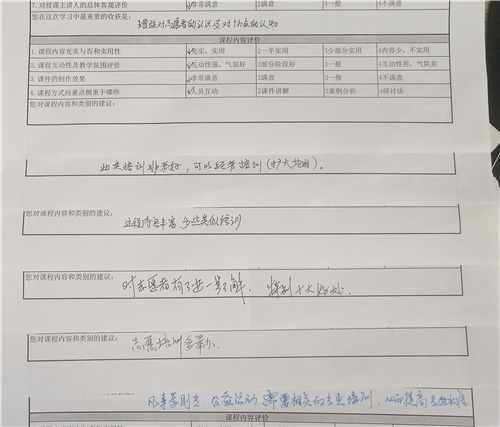 7.对授课主讲人的总体客观评价 ✓非常满意 2满意 3一般 4不满意
您在这次学习中最重要的收获是：
增强对志愿者的认识及对 的认知
课程内容评价
1.课程内容充实与否和实用性 ✓充实、实用 2一半实用 3少部分实用 4内容少，不实用
2.课程互动性及教学氛围评价 ✓互动性强，气氛好 2部分阶段好 3一般 4互动性差，气氛差
3.课件的制作效果 ✓非常满意 2满意 3一般 4不满意
4.课程方式应重点侧重于哪些 ✓人员互动 2课件讲解 3案例分析 4研讨法
您对课程内容和类别的建议：
此类培训非常好，可以经常培训（扩大范围）。
您对课程内容和类别的建议：
过程内容丰富，多些类似培训
您对课程内容和类别的建议：
对志愿者有了进一步了解，得到十大好处。
您对课程内容和类别的建议：
志愿培训多举办。
凡事豫则立，公益活动需要相关的专业培训，从而提高
课程内容评价